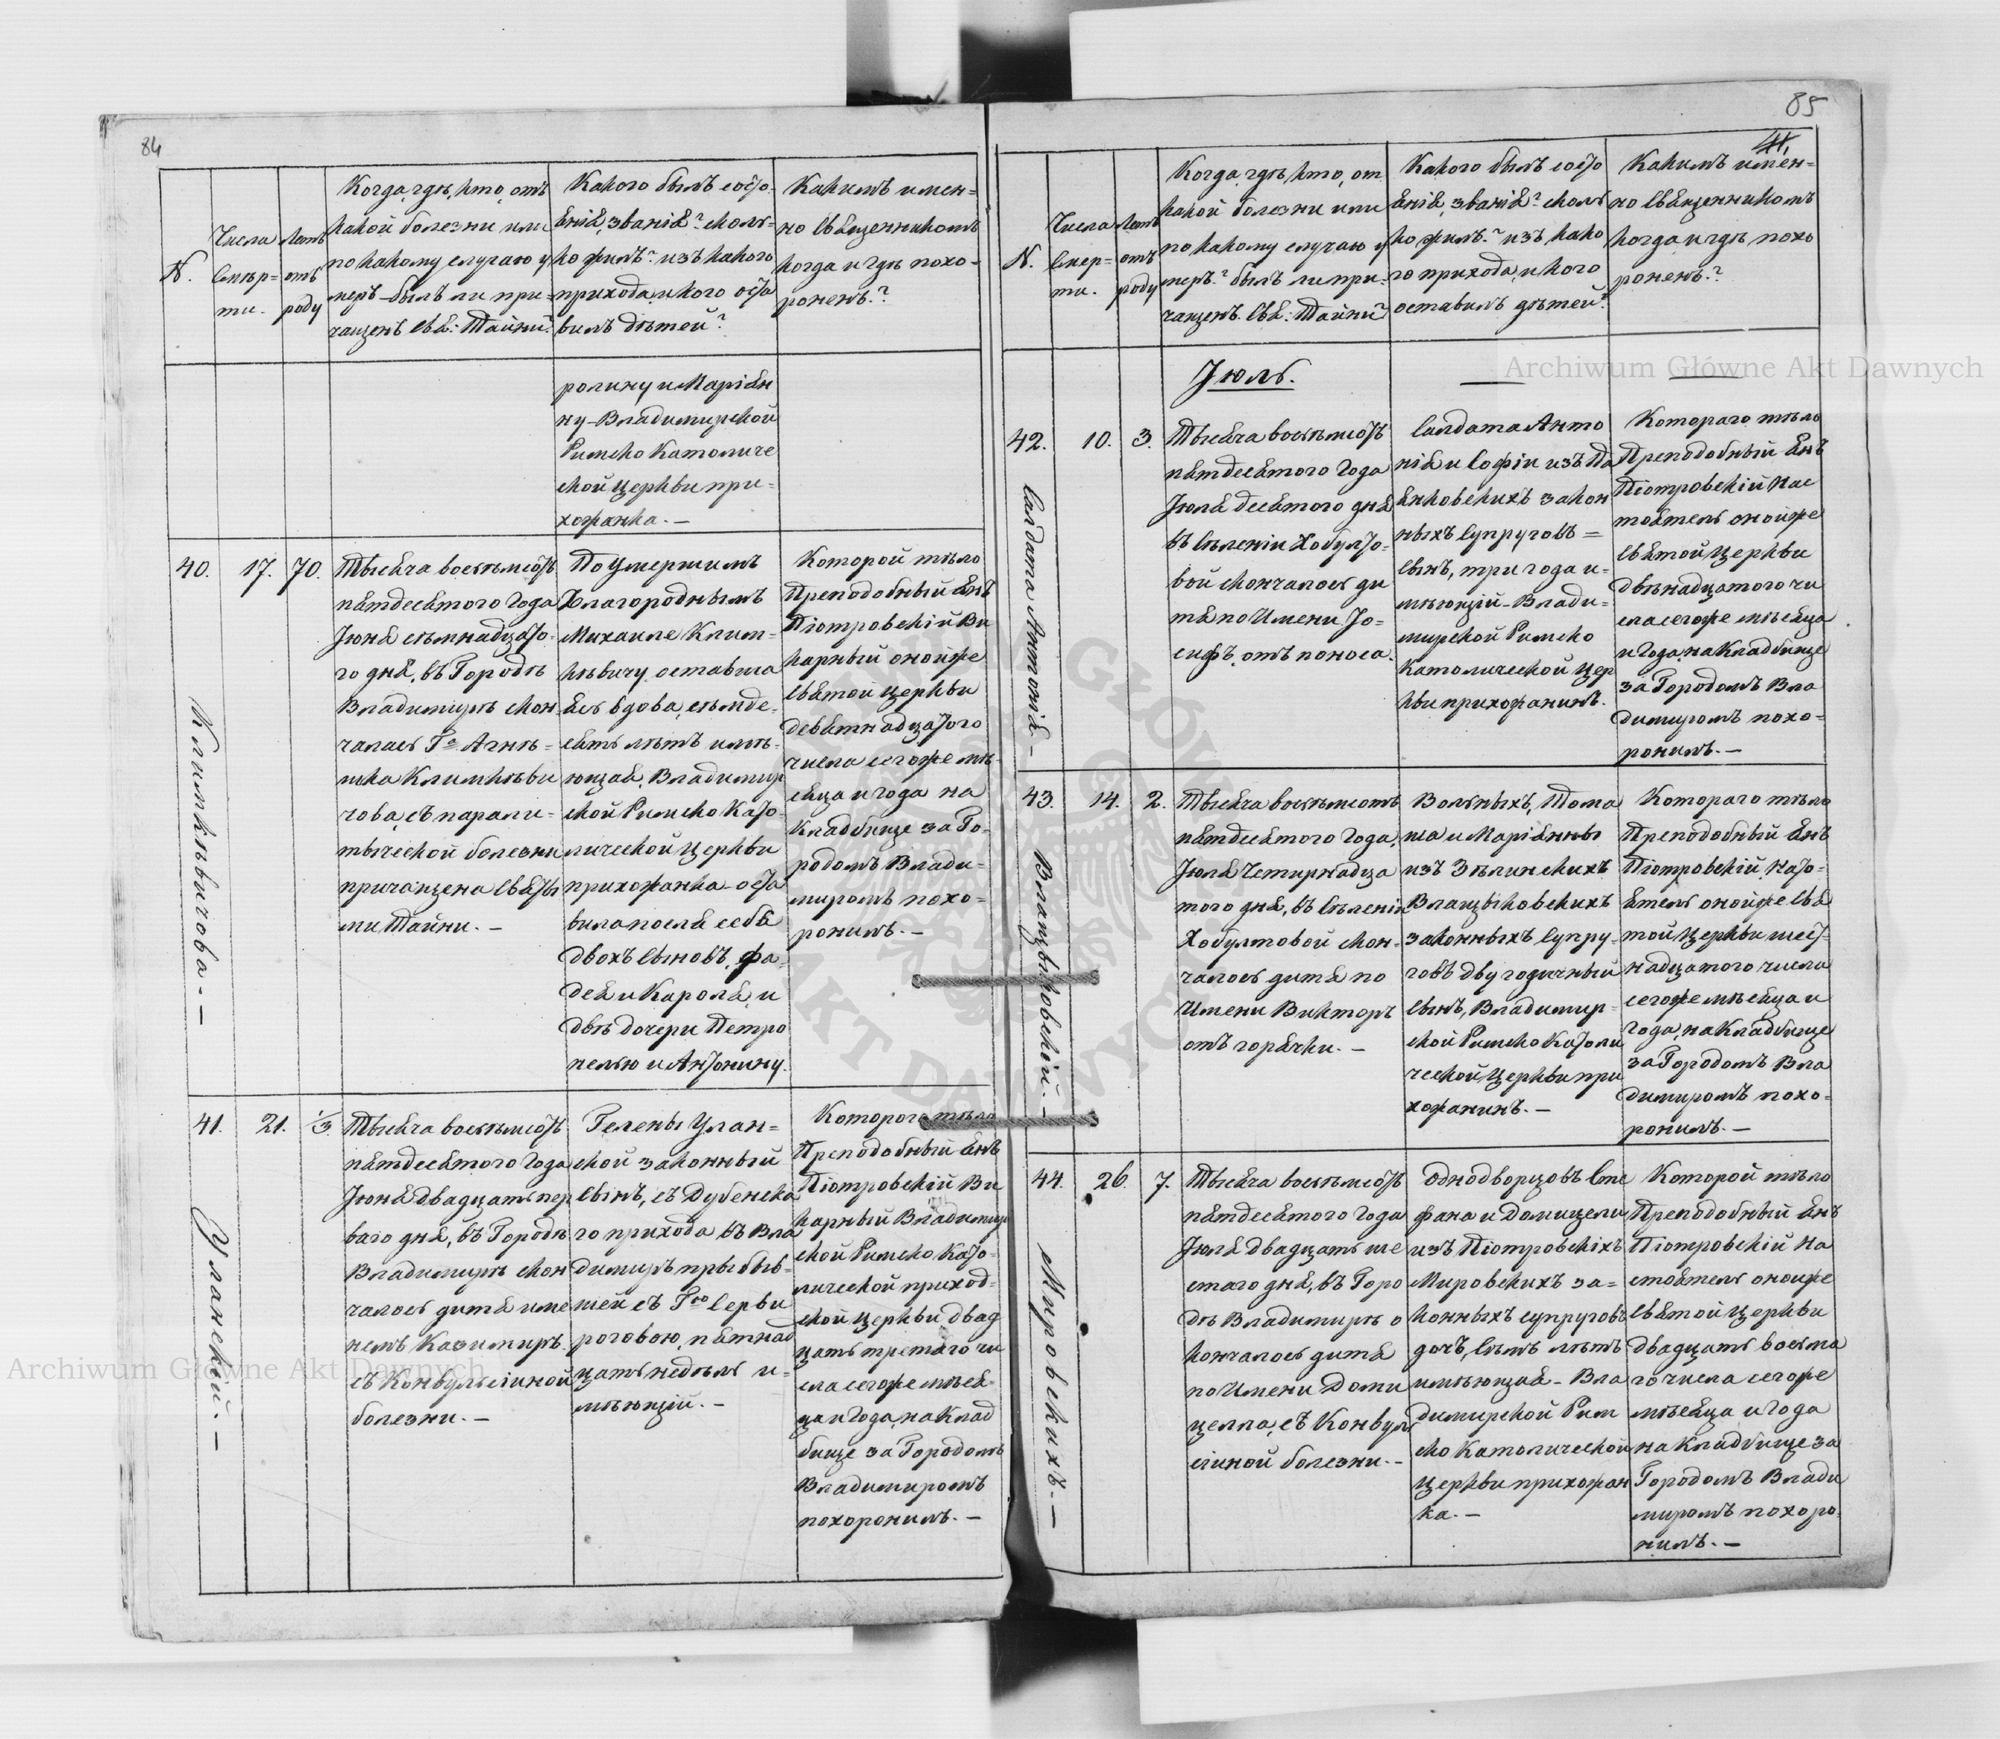 84
N.
Числа
Смѣр=
ти.
Летъ
отъ
роду
Когда, гдѣ, кто, отъ
какой болезни или
по какому случаю у
меръ – былъ ли при=
чащенъ Свя: Тайнъ?
Какого былъ состо=
янія, званія? сколь=
ко жилъ? изъ какого
прихода, и кого оста
вилъ дѣтей?
Какимъ имен=
но Священникомъ
когда и гдѣ похо=
роненъ?
ролину и Маріян
ну – Владимирской
Римско Католиче
ской церкви при=
хожанка. –
40.
Климкѣвичова. –
17.
70.
Тысяча восемьсотъ
пятдесятого Года
Іюня семнадцато=
го дня, въ Городѣ
Владимирѣ скон=
чалась Га Агнѣ=
шка Климкѣви
чова, съ парали=
тической болезни
причащена Святы
ми Тайни. –
По умершимъ
Благороднымъ
Михаиле Клим=
кѣвичу оставша
ясь вдова, семде=
сятъ лѣтъ имѣ=
ющая, Владимир
ской Римско Като
лической Церкви
прихожанка – оста
вила послѣ себя
двохъ сыновъ, Фа=
дея и Кароля, и
двѣ дочери Петро
нелью и Антонину.
Которой тѣло
Преподобный Янъ
Піотровскій Ви
карный оной же
Святой Церкви
девятнадцатого
числа сего же мѣ=
сяца и года на
Кладбище за Го=
родомъ Влади=
миромъ похо=
ронилъ. –
41.
Уланскій. –
21.
1/3.
Тысяча восемьсотъ
пятдесятого Года
Іюня двадцать пер
ваго дня, въ Городѣ
Владимирѣ скон
чалось дитя име
немъ Казимиръ
съ Конвульсіиной
болезни. –
Гелены Улан=
ской законный
сынъ, съ Дубенска
го прихода въ Вла
димиръ прыбыв=
шей съ Гею Серви
роговою, пятнад
цать недѣль и=
мѣющій. –
Которого тѣло
Преподобный Янъ
Піотровскій Ви
карный Владимир
ской Римско Като=
лической приход=
ской Церкви двад
цать третаго чи
сла сего же мѣся=
ца и Года, на Клад
бище за Городомъ
Владимиромъ
похоронилъ. –
85
44,
N.
Числа
Смер=
ти.
Летъ
отъ
роду
Когда, гдѣ, кто, от
какой болезни или
по какому случаю у
меръ? былъ ли при=
чащенъ Свя: Тайнъ?
Какого былъ состо
янія, званія? сколь
ко жилъ? изъ како
го прихода, и кого
оставилъ дѣтей?
Какимъ имен=
но Священникомъ
когда и гдѣ похо
роненъ?
Іюль.
42.
Салдата Антонія –
10.
3.
Тысяча восемьсотъ
пятдесятого Года
Іюля десятого дня
въ Сѣленіи Хобулто=
вой скончалось ди
тя по Имени Іо=
сифъ, отъ поноса.
Салдата Анто
нія и Софіи изъ
янковскихъ закон
ныхъ Супруговъ =
сынъ, три года и=
мѣющій – Влади=
мирской Римско
Католической Цер
кви прихожанинъ.
Котораго тѣло
Преподобный Янъ
Піотровскій Нас
тоятель оной же
Святой Церкви
двѣнадцатого чи
сла сего же мѣсяца
и Года, на Кладбище
за Городомъ Вла
димиромъ похо=
ронилъ. –
43.
Влащыковскій. –
14.
2.
Тысяча восемьсотъ
пятдесятого Года,
Іюля Четирнадца
того дня, въ Сѣленіи
Хобултовой скон=
чалось дитя по
Имени Викторъ
отъ горячки. –
Вольныхъ, Тома
ша и Маріянны
изъ Зѣлинскихъ
Влащыковскихъ
законныхъ Супру=
говъ двугодичный
сынъ, Владимир=
ской Римско Католи
ческой Церкви при
хожанинъ. –
Котораго тѣло
Преподобный Янъ
Піотровскій, Насто=
ятель оной же Свя
той Церкви шест=
надцатого числа
сего же мѣсяца и
Года, на Кладбище
за Городомъ Вла
димиромъ похо=
ронилъ. –
44.
Мировскахъ. –
26.
7.
Тысяча восемьсотъ
пятдесятого Года
Іюля двадцать ше
стаго дня, въ Горо
дѣ Владимирѣ с
кончалось дитя
по Имени Доми
целла, съ Конвуль
сіиной болезни. –
Однодворцовъ Сте
фана и Домицели
изъ Піотровскіхъ
Мировскихъ за=
конныхъ супруговъ
дочъ, Семь лѣтъ
имѣющая – Вла
димирской Рим
ско Католической
Церкви прихожан
ка. –
Которой тѣло
Преподобный Янъ
Піотровскій На
стоятель оной же
Святой Церкви
двадцать восьма
го числа сего же
мѣсяца и Года
на Кладбище за
Городомъ Влади
миромъ похоро
нилъ. –
Archiwum Główne Akt Dawnych
Archiwum Główne Akt Dawnych